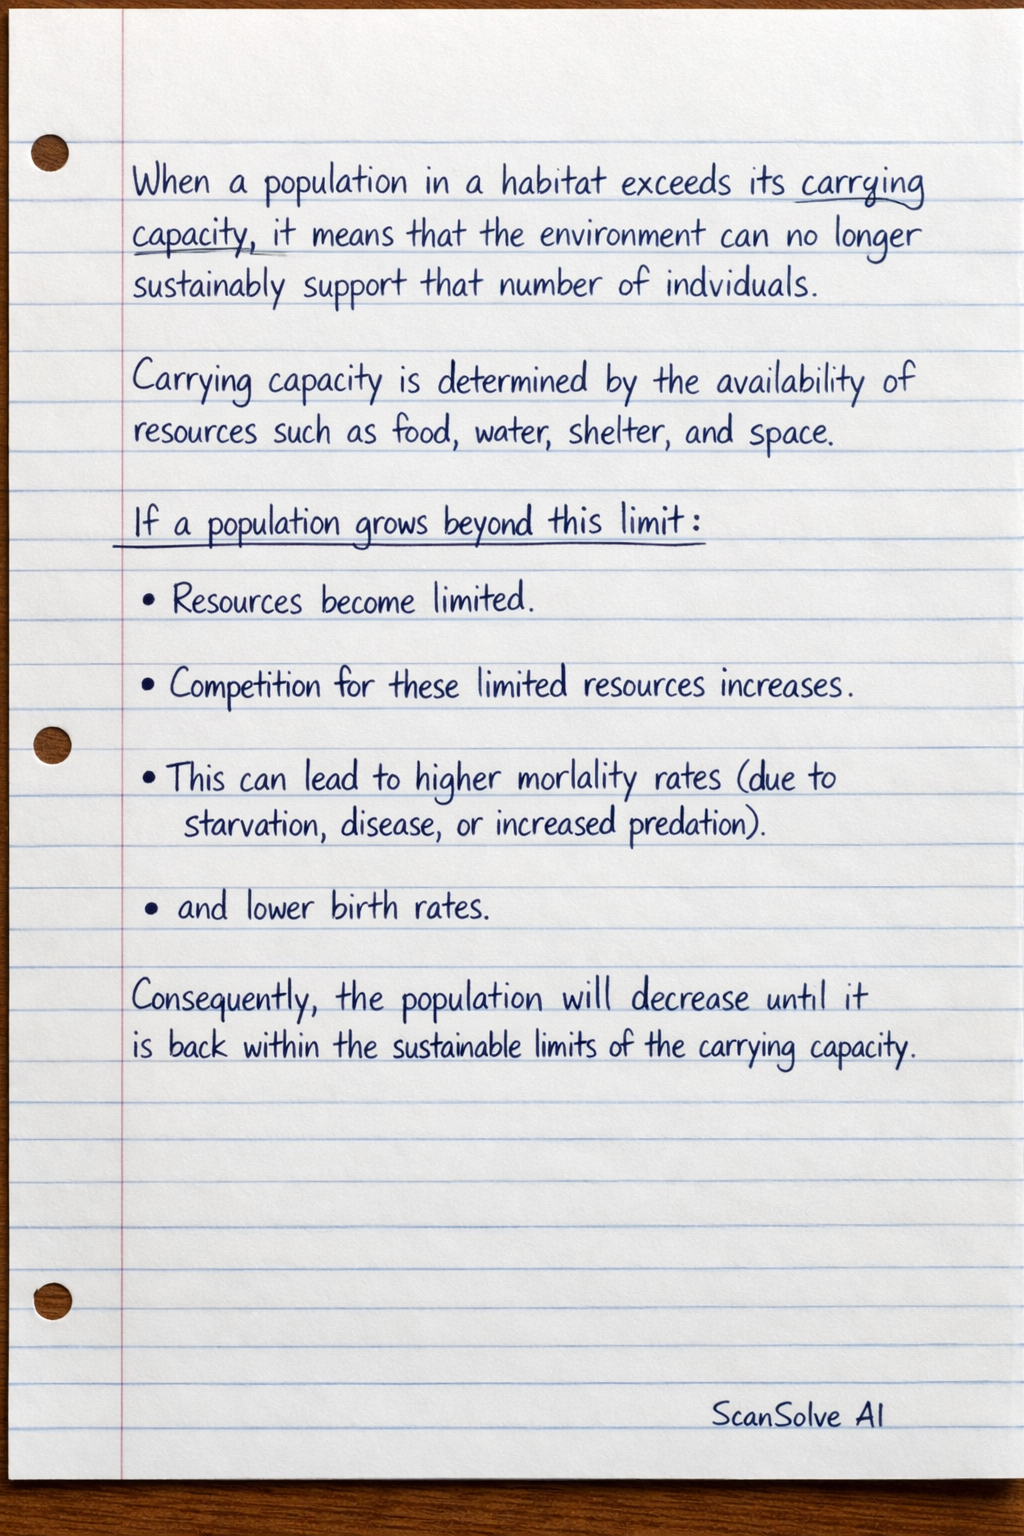 When a population in a habitat exceeds its carrying
capacity, it means that the environment can no longer
sustainably support that number of indviduals.
Carrying capacity is determined by the availability of
resources such as food, water, shelter, and space.
If a population grows beyond this limit:
• Resources become limited.
• Competition for these limited resources increases.
• This can lead to higher morlality rates (due to
starvation, disease, or increased predation).
• and lower birth rates.
Consequently, the population will decrease until it
is back within the sustainable limits of the carrying capacity.
ScanSolve AI